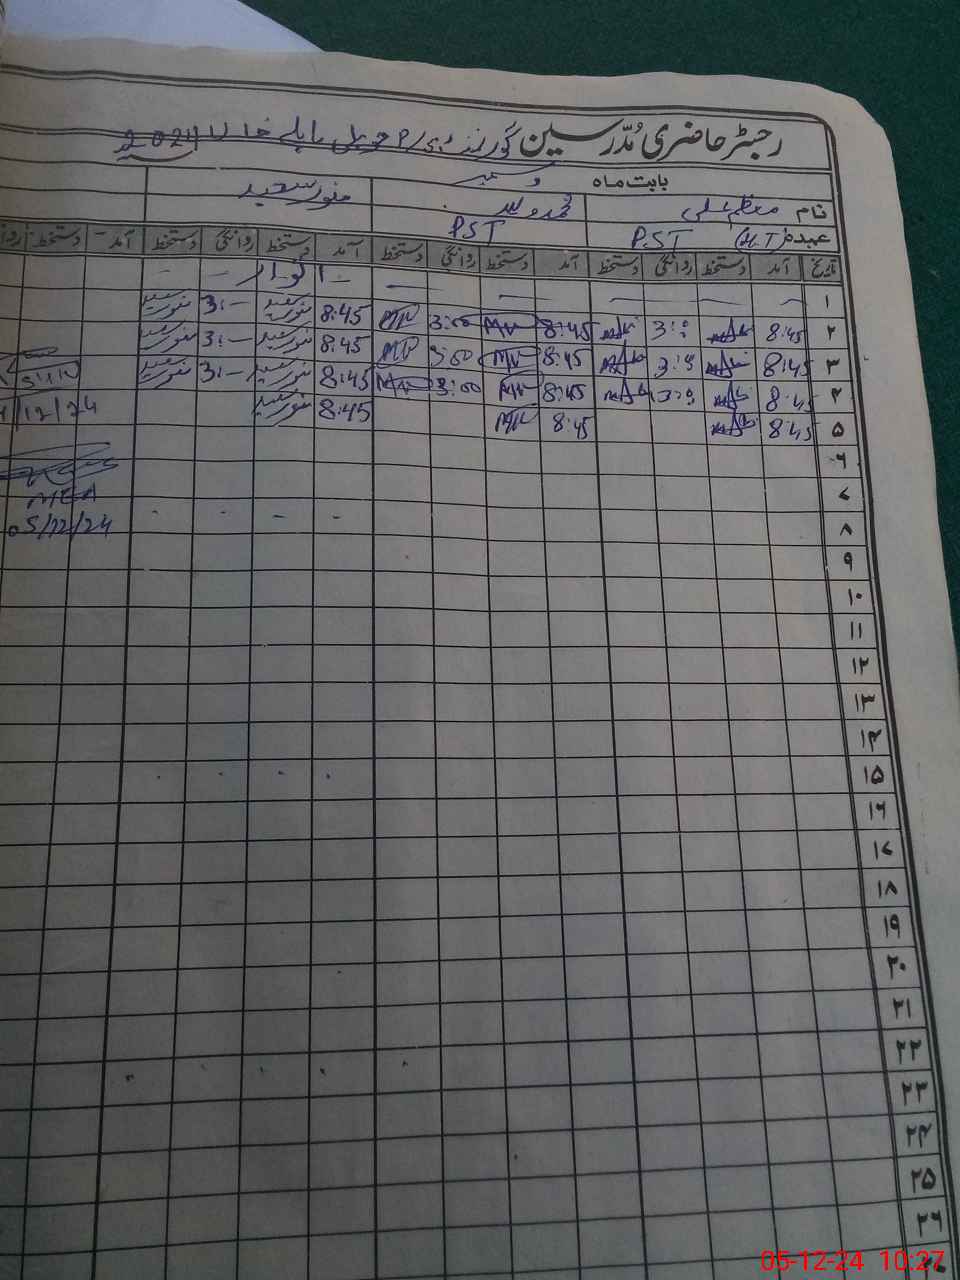 رجسٹر حاضری مُدّرسین گورنمنٹ 2024
بابت ماہ دسمبر
نام معظم علی محمد ولید منور سعید
عہدہ (H.T) P.S.T P.S.T
تاریخ آمد دستخط روانگی دستخط آمد دستخط روانگی دستخط آمد دستخط روانگی دستخط آمد دستخط روانگی
۱ اتوار
۲ 8:45 3:00 8:45 3:00 8:45 منور سعید 3:- منور سعید
۳ 8:45 3:00 8:45 3:00 8:45 منور سعید 3:- منور سعید
۴ 8:45 3:00 8:45 3:00 8:45 منور سعید 3:- منور سعید
۵ 8:45 8:45 8:45 منور سعید
4/12/24
۶
۷ MEA
۸ 05/12/24
۹
۱۰
۱۱
۱۲
۱۳
۱۴
۱۵
۱۶
۱۷
۱۸
۱۹
۲۰
۲۱
۲۲
۲۳
۲۴
۲۵
۲۶
05-12-24 10:27